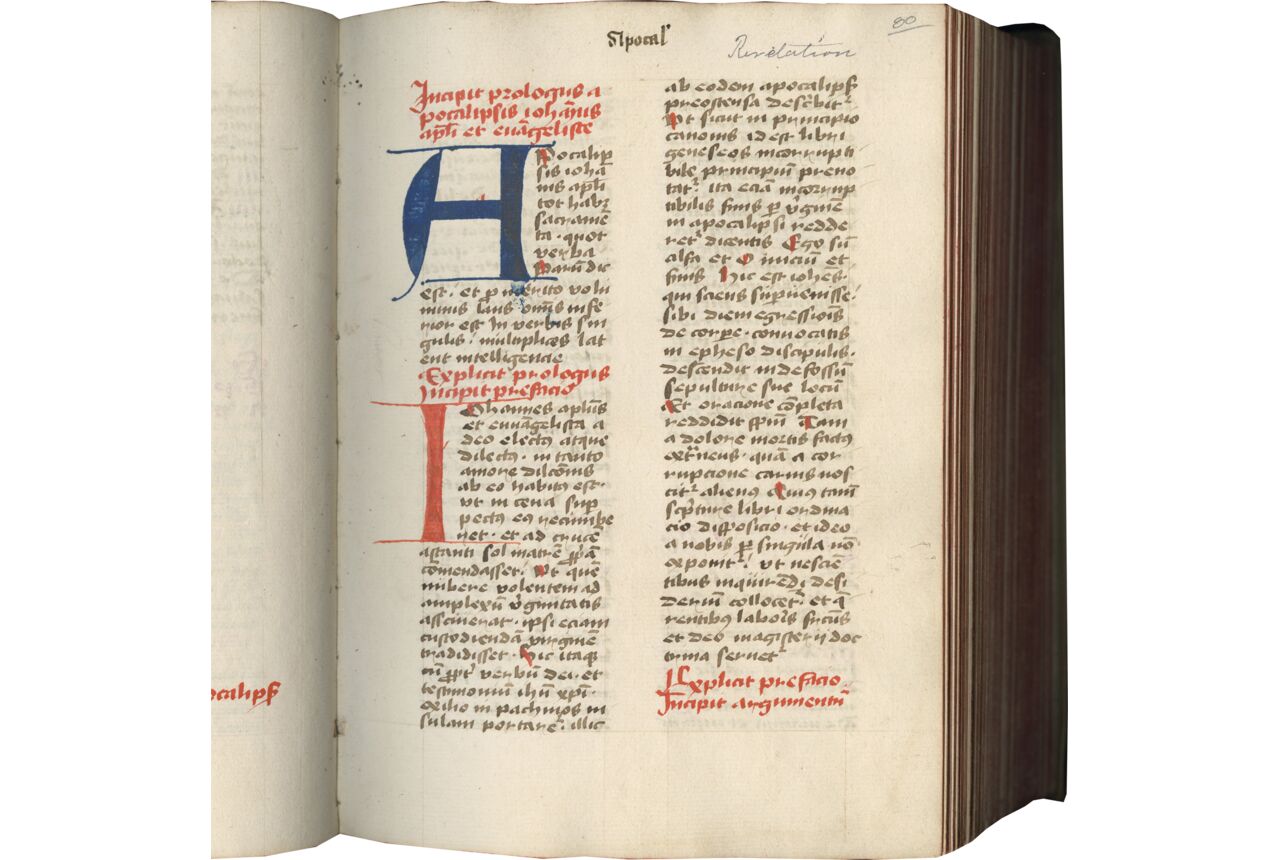 Apocal'
Revelation
80
Incipit prologus a
pocalipsis ioha̅nis
apl̅i et eua̅geliste
Apocalip
sis ioha̅
nis apl̅i
tot habz
sacrame̅
ta · quot
verba
Paru̅ dic̅
est · et p̲ merito volu
minis laus om̅is infe
rior est In verbis sin
gulis · multiplices lat
ent intelligencie
Explicit prologus
Incipit prefacio
Iohannes apl̅us
et euuangelista a
deo electꝰ atque
dilectꝰ · in tanto
amore dilc̅onis
ab eo habitꝰ est ·
vt in cena sup̲
pectꝰ eiꝰ recumbe
ret · et ad cruce̅
astanti sol matre̅ p̲p̲a̅
co̅mendasset · Vt que̅
nubere volentem ad
amplexu̅ v̓ginitatis
assciuerat · ipsi eciam
custodienda̅ virgine̅
tradidisset · Hic itaqꝫ
cu̅ ppt̓ verbu̅ dei · et
testimoniu̅ ih̅u xp̅i ·
exilio in pathmos in
sulam portaret̓ · illic
ab eodem apocalips̅
preostensa desc̓bit̓
Vt sicut in principio
canonis id est libri
geneseos incorrupti
bile principium preno
tat̓ · ita ecia̅ incorrup
tibilis finis p̲ v̓gine̅
in apocalipsi redde
ret̓ dicentis Ego su̅
alfa et O iniciu̅ et
finis · Hic est ioh̅es ·
qui sciens sup̲uenisse ·
sibi diem egressionis
de corp̲e · conuocatis
in epheso discipulis ·
descendit in defossu̅
sepulture sue locu̅
Et oracione co̅pleta
reddidit sp̅m · Tam
a dolore mortis factꝰ
ext̓neus · qua̅ a cor
rupcione carnis nos
cit̓ alienꝰ Cuiꝰ tam̅
sc̓pture libri ordina
cio disposicio · et ideo
a nobis p̲ singula no̅
exponit̓ · vt nescie̅
tibus inquirẽdi desi
deriu̅ collocet̓ · et q̅
rentibꝰ labor̅is fructus
et deo magisterij doc
trina seruet̓
Explicit prefacio
Incipit argumentu̅
pocalips̅